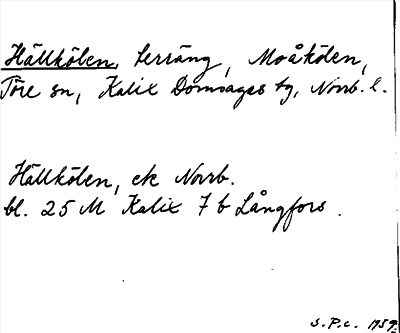 Hällkölen, terräng, Moåkölen,
Töre sn, Kalix Domsagas tg, Norrb. l.
Hällkölen, ek Norrb.
bl. 25 M Kalix 7 b Långfors.
S.P.c. 1959.